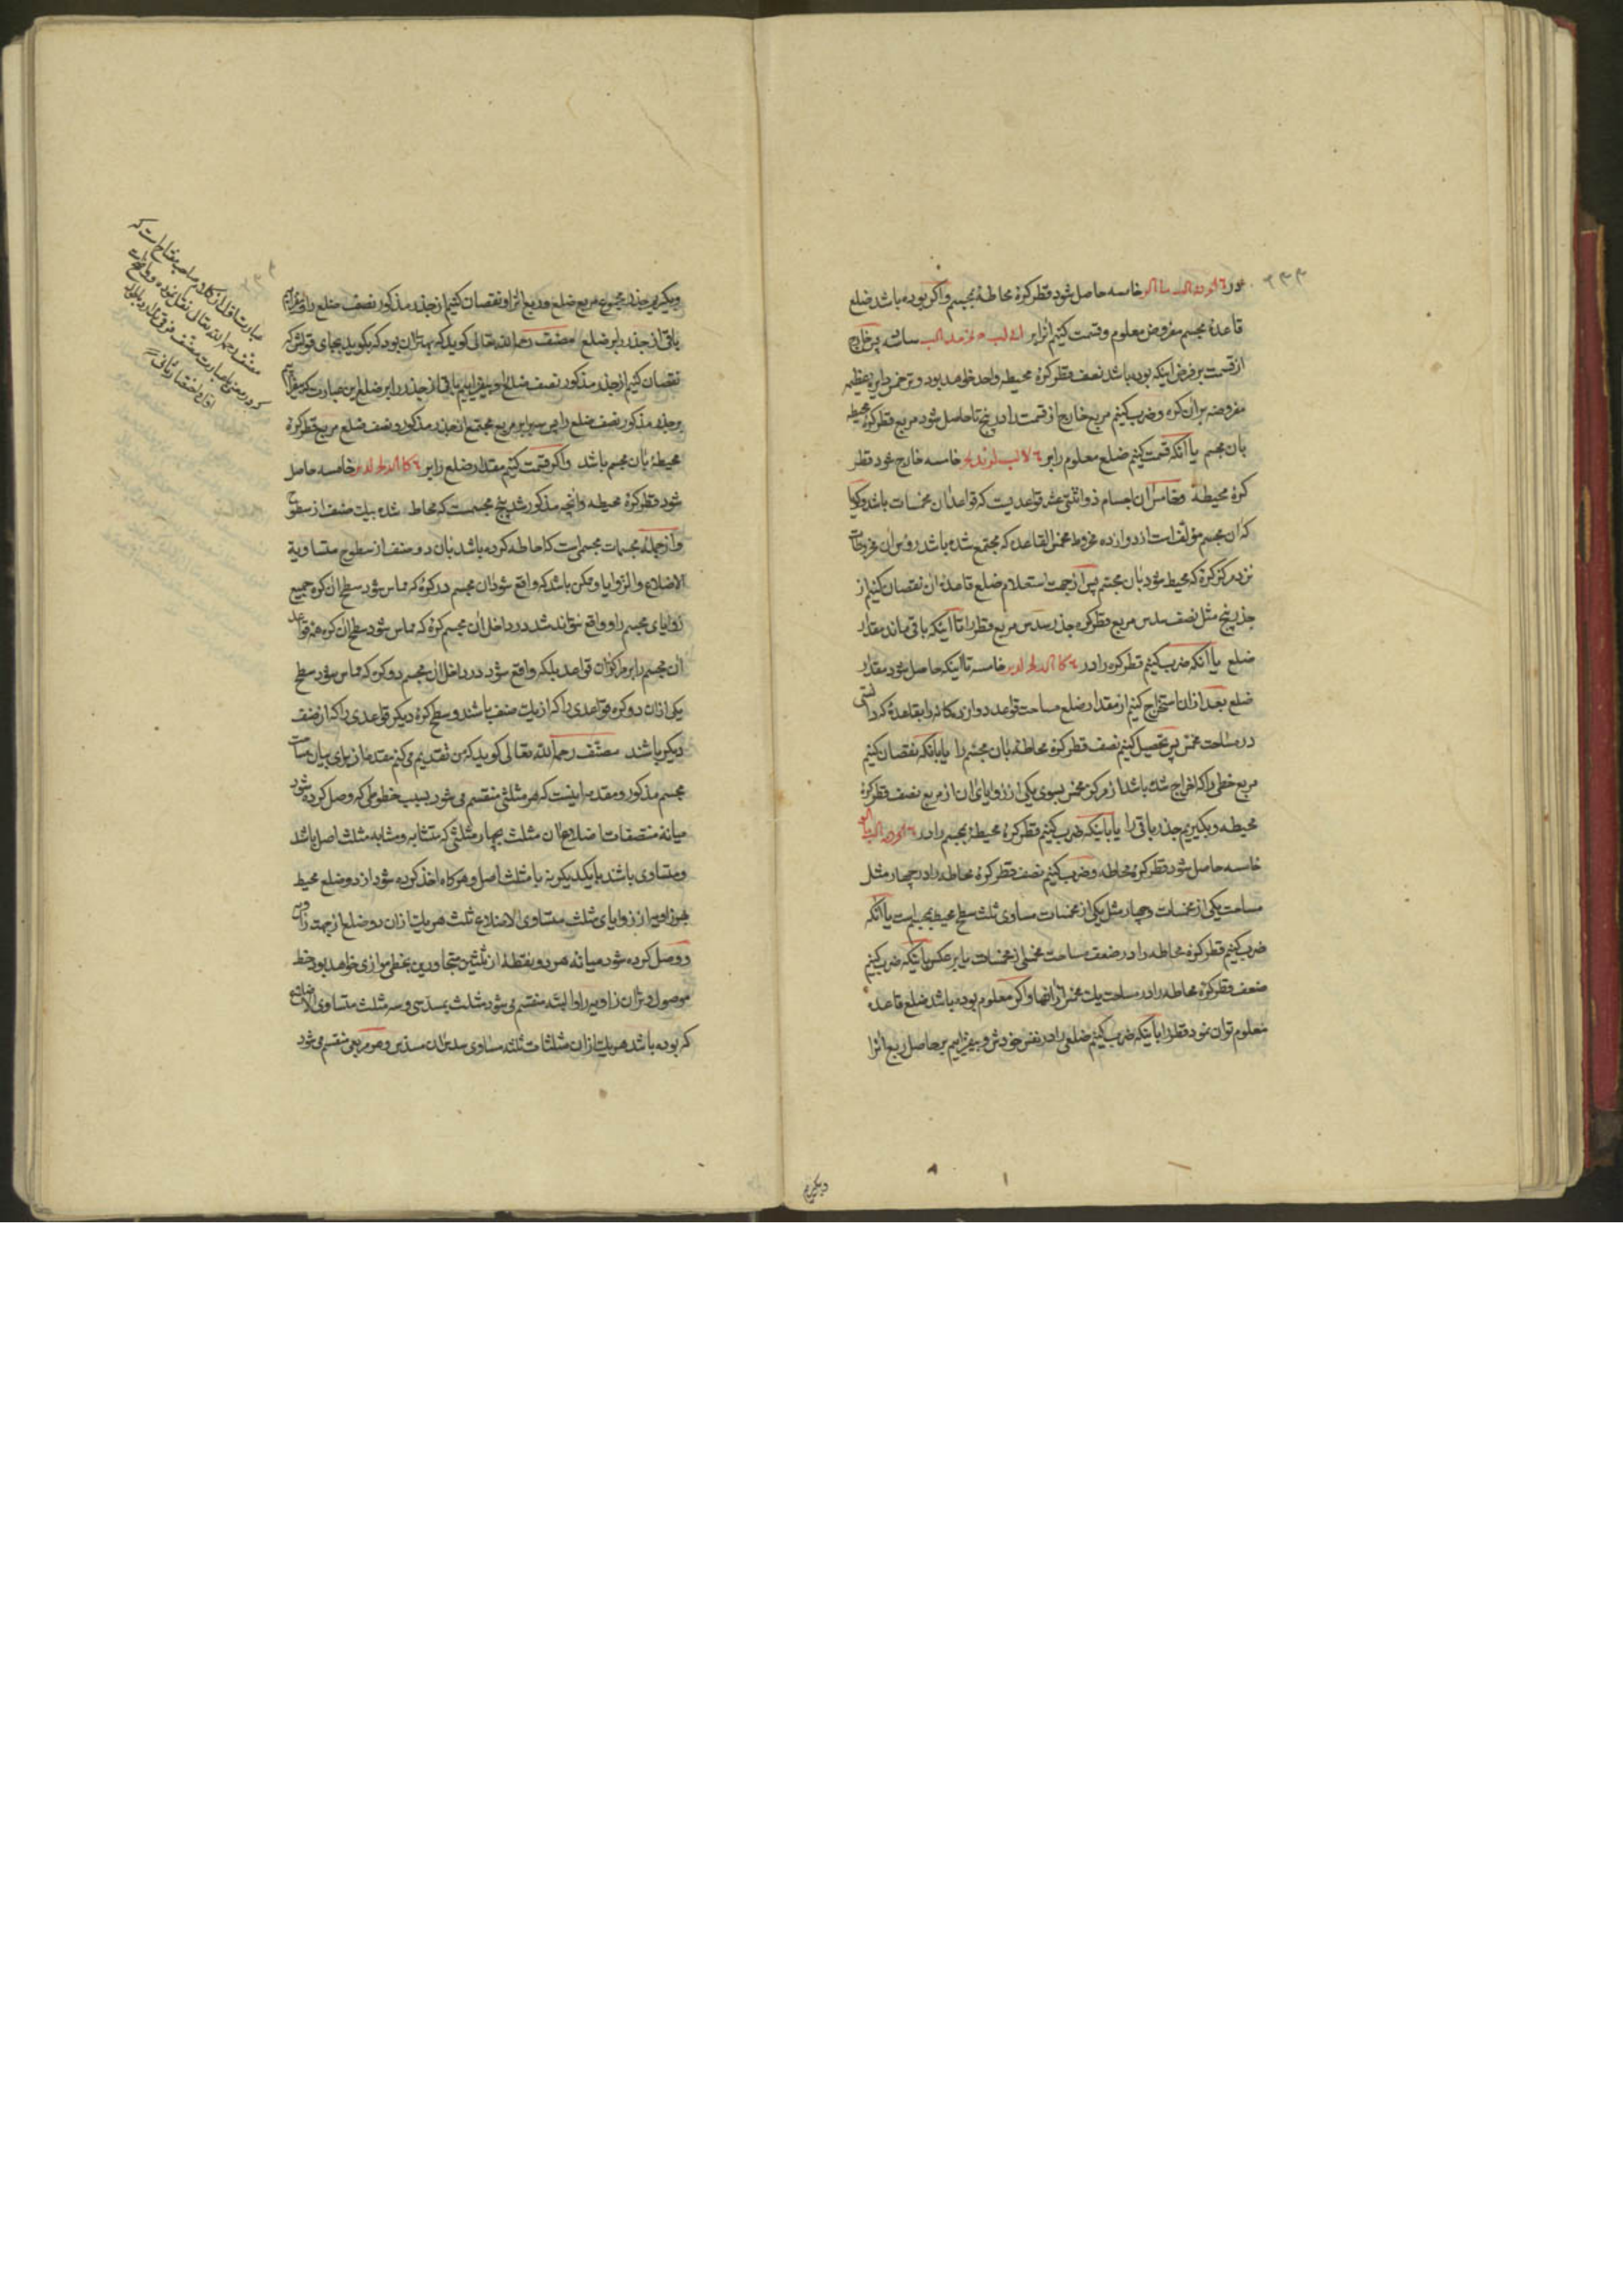 خامسه حاصل شود قطر کرهٔ محاطهٔ بمجسم و اکر بوده باشد ضلع
قاعدهٔ مجسم مفروض معلوم و قسمت کنیم انرا بر سادسه پس خارج
از قسمت بر فرض اینکه بوده باشد نصف قطر کرهٔ محیطه واحد خواهد بود وتر خمس دایرهٔ عظیمه
مفروضه بران کره و ضرب کنیم مربع خارج از قسمت را در پنج تا حاصل شود مربع قطر کرهٔ محیطه
بان مجسم یا انکه قسمت کنیم ضلع معلوم را بر خامسه خارج شود قطر
کرهٔ محیطهٔ و خامس ان اجسام ذو اثنتی عشر قواعدیست که قواعد ان مخمسات باشد و کویا
که ان مجسم مؤلف است از دوازده مخروط مخمس القاعده که مجتمع شده باشد رؤس ان مخروطات
نزد مرکز کره که محیط شود بان مجسم پس از جهت استعلام ضلع قاعدهٔ ان نقصان کنیم از
جذر پنج مثل نصف سدس مربع قطر کره جذر سدس مربع قطر را تا اینکه باقی ماند مقدار
ضلع یا انکه ضرب کنیم قطر کره را در خامسه تا اینکه حاصل شود مقدار
ضلع بعد ازان استخراج کنیم از مقدار ضلع مساحت قواعد دوازده کانه را بقاعدهٔ که دانستی
در مساحت مخمس پس تحصیل کنیم نصف قطر کرهٔ محاطهٔ بان مجسم را یا بانکه نقصان کنیم
مربع خطی را که اخراج شده باشد از مرکز مخمس بسوی یکی از زوایای ان از مربع نصف قطر کرهٔ
محیطه و بکیریم جذر باقی را یا باینکه ضرب کنیم قطر کرهٔ محیطهٔ بمجسم را در
خامسه حاصل شود قطر کرهٔ محاطه و ضرب کنیم نصف قطر کرهٔ محاطه را در چهار مثل
مساحت یکی از مخمسات و چهار مثل یکی از مخمسات مساوی ثلث سطح محیط بمجسم است یا انکه
ضرب کنیم قطر کرهٔ محاطه را در ضعف مساحت مخمسی از مخمسات یا بر عکس یا اینکه ضرب کنیم
ضعف قطر کرهٔ محاطه را در مساحت یک مخمس ازانها و اکر معلوم بوده باشد ضلع قاعده
معلوم توان نمود قطر را باینکه ضرب کنیم ضلعی را در نفس خودش و بیفزاییم بر حاصل ربع انرا
وبکیریم
وبکیریم جذر مجموع مربع ضلع و ربع انرا و نقصان کنیم از جذر مذکور نصف ضلع را و بیفزاییم
باقی از جذر را بر ضلع مصنف رحمه الله تعالی کوید که بهتر ان بود که بکوید بجای قولش که
نقصان کنیم از جذر مذکور نصف ضلع را و بیفزاییم باقی از جذر را بر ضلع این عبارت که بیفزاییم
بر جذر مذکور نصف ضلع را پس مربع مجتمع از جذر مذکور و نصف ضلع مربع قطر کرهٔ
محیطهٔ بان مجسم باشد و اکر قسمت کنیم مقدار ضلع را بر خامسه حاصل
شود قطر کرهٔ محیطه و انچه مذکور شد پنج مجسمست که محاط شده بیک صنف از سطوح
و از جملهٔ مجسمات مجسمی است که احاطه کرده باشد بان دو صنف از سطوح متساویة
الاضلاع و الزوایا و ممکن باشد که واقع شود ان مجسم در کرهٔ که مماس شود سطح ان کره جمیع
زوایای مجسم را و واقع نتواند شد در داخل ان مجسم کرهٔ که مماس شود سطح ان کره همهٔ قواعد
ان مجسم را بر مراکز ان قواعد بلکه واقع شود در داخل ان مجسم دو کره که مماس شود سطح
یکی ازان دو کره قواعدی را که از یک صنف باشند و سطح کرهٔ دیکر قواعدی را که از صنف
دیکر باشند مصنف رحمه الله تعالی کوید که من تقدیم می کنم مقدمهٔ از برای بیان مساحت
مجسم مذکور و مقدمه اینست که هر مثلثی منقسم می شود بسبب خطوطی که وصل کرده شود
میانهٔ منتصفات اضلاع ان مثلث بچهار مثلثی که متشابه و مشابه مثلث اصل باشد
و متساوی باشد با یکدیکر نه با مثلث اصل و هرکاه اخذ کرده شود از دو ضلع محیط
بهر زاویه از زوایای مثلث متساوی الاضلاع ثلث هر یک ازان دو ضلع از جهت زاویه
و وصل کرده شود میانه هر دو نقطه از ثلثین متجاورین بخطی موازی خواهد بود خط
موصول وتر ان زاویه را و البته منقسم می شود مثلث بمسدسی و سه مثلث متساوی الاضلاع
که بوده باشد هر یک ازان مثلثات ثلثه مساوی سدس ان مسدس و هر مربعی منقسم می شود
عبارت اول از کلام صاحب مفتاح است که
مصنف رحمه الله تعالی نقل نموده و عبارت